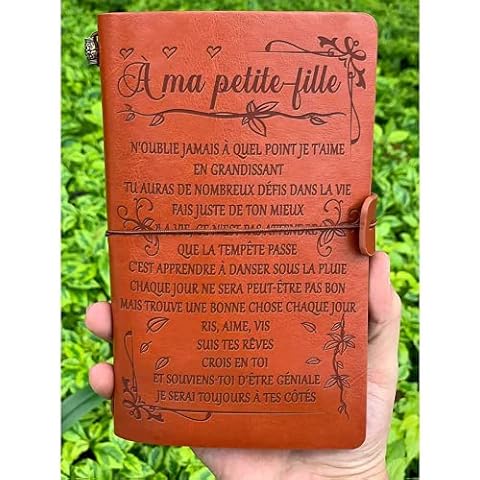 À ma petite-fille
N'OUBLIE JAMAIS À QUEL POINT JE T'AIME
EN GRANDISSANT
TU AURAS DE NOMBREUX DÉFIS DANS LA VIE
FAIS JUSTE DE TON MIEUX
LA VIE, CE N'EST PAS ATTENDRE
QUE LA TEMPÊTE PASSE
C'EST APPRENDRE À DANSER SOUS LA PLUIE
CHAQUE JOUR NE SERA PEUT-ÊTRE PAS BON
MAIS TROUVE UNE BONNE CHOSE CHAQUE JOUR
RIS, AIME, VIS
SUIS TES RÊVES
CROIS EN TOI
ET SOUVIENS-TOI D'ÊTRE GÉNIALE
JE SERAI TOUJOURS À TES CÔTÉS